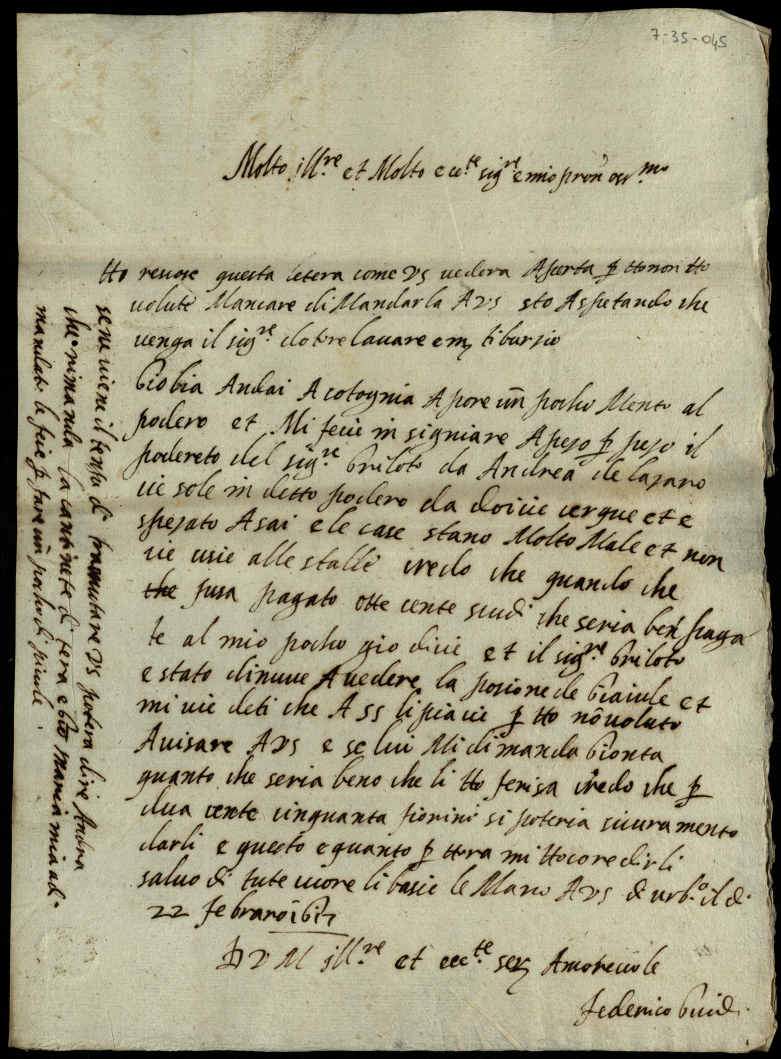 7-35-045
Molto jll.re et Molto ecc.te sig.re e mio pron oss.mo
Ho receve questa letera come VS vedera Aperta p Honon Ho
volute Mancare di Mandarla AVS sto Aspetando che
venga il sig.re dotore lavare em tibursio
Giobia Andai A cotognia A pore un pocho Mente al
podere et Mi fecie in signiare Apezo p pezo il
podereto del sig.re Briloto da Andrea de lazaro
cie sole in detto podere da dodicie cerque et e
spezato Asai e le case stano Molto Male et non
cie usie alle stalle credo che quando che
the fusa pagato otte cente scudi che seria ben paga
te al mio pocho giodicie et il sig.re Briloto
e stato dinuve Avedere la posione de Graicile et
mi cie deti che A SS li piacie p Ho nõ voluto
Avisare AVS e se lui Mi dimanda Gionta
quanto che seria bene che li Ho ferisa credo che p
dua cente cinquanta fiorini si poteria sicuramente
darli e questo e quanto p Hora mi Hocore dirli
salvo di tute cuore li bacie le Mane AVS d urb.o il di
22 febraro 1617
D V M jll.re et ecc.te ser Amorevole
federico Guid.
se ne viene il tenpo di tramutare VS potera dire Andrea
che rimanda la cantinete di tera e Gio maria mia ad
mandato le fecie p fare un pocho di picole.